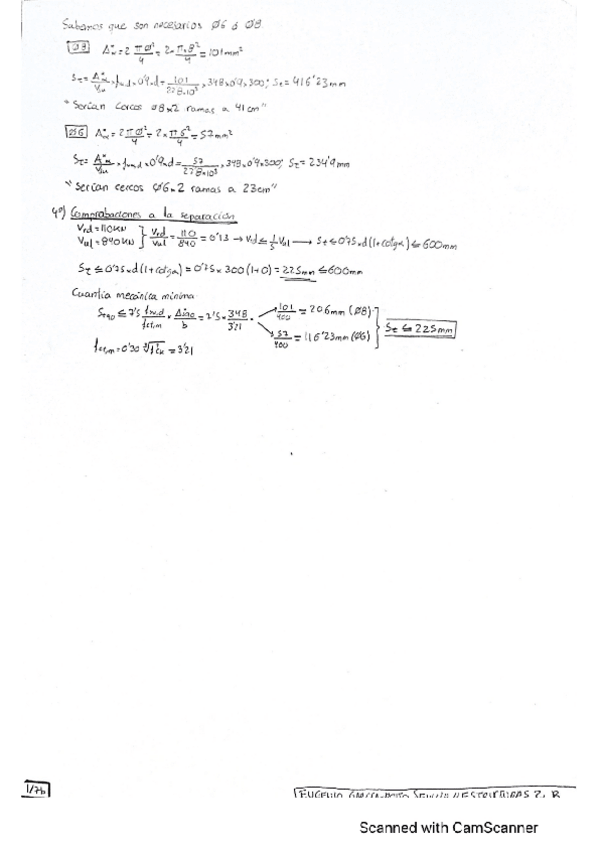 Sabemos que son necesarios Ø6 ó Ø8.
Ø8 A = 2 π Ø²/4 = 2·π·8²/4 = 101 mm²
St = · 0'9·d = 101/228·10³ · 348·0'9·300; St = 416'23 mm
"Serían cercos Ø8 x 2 ramas a 41 cm"
Ø6 A = 2 π Ø²/4 = 2 x π 6²/4 = 57 mm²
St = x 0'9 x d = 57/228·10³ · 348·0'9·300; St = 234'9 mm
"Serían cercos Ø6 x 2 ramas a 23 cm"
4º) Comprobaciones a la separación
Vrd = 110 KN
Vu1 = 840 KN } Vrd/Vu1 = 110/840 = 0'13 → Vrd ≤ 1/5 Vu1 → St ≤ 0'75 x d (1 + cotgα) ≤ 600 mm
St ≤ 0'75 x d (1 + cotgα) = 0'75 x 300 (1+0) = 225 mm ≤ 600 mm
Cuantía mecánica mínima
St,90 ≤ 7'5 x = 7'5 x 348/3'21 · 101/400 = 206 mm (Ø8)
57/400 = 116'23 mm (Ø6) ] St ≤ 225 mm
fct,m = 0'30 ∛fck² = 3'21
1/7b
EUGENIO ESTRUCTURAS 2, B
Scanned with CamScanner